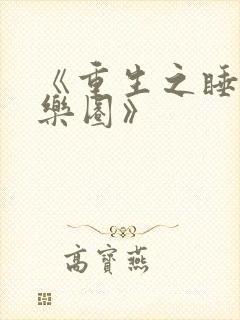 《重生之睡
樂園》
高寶燕